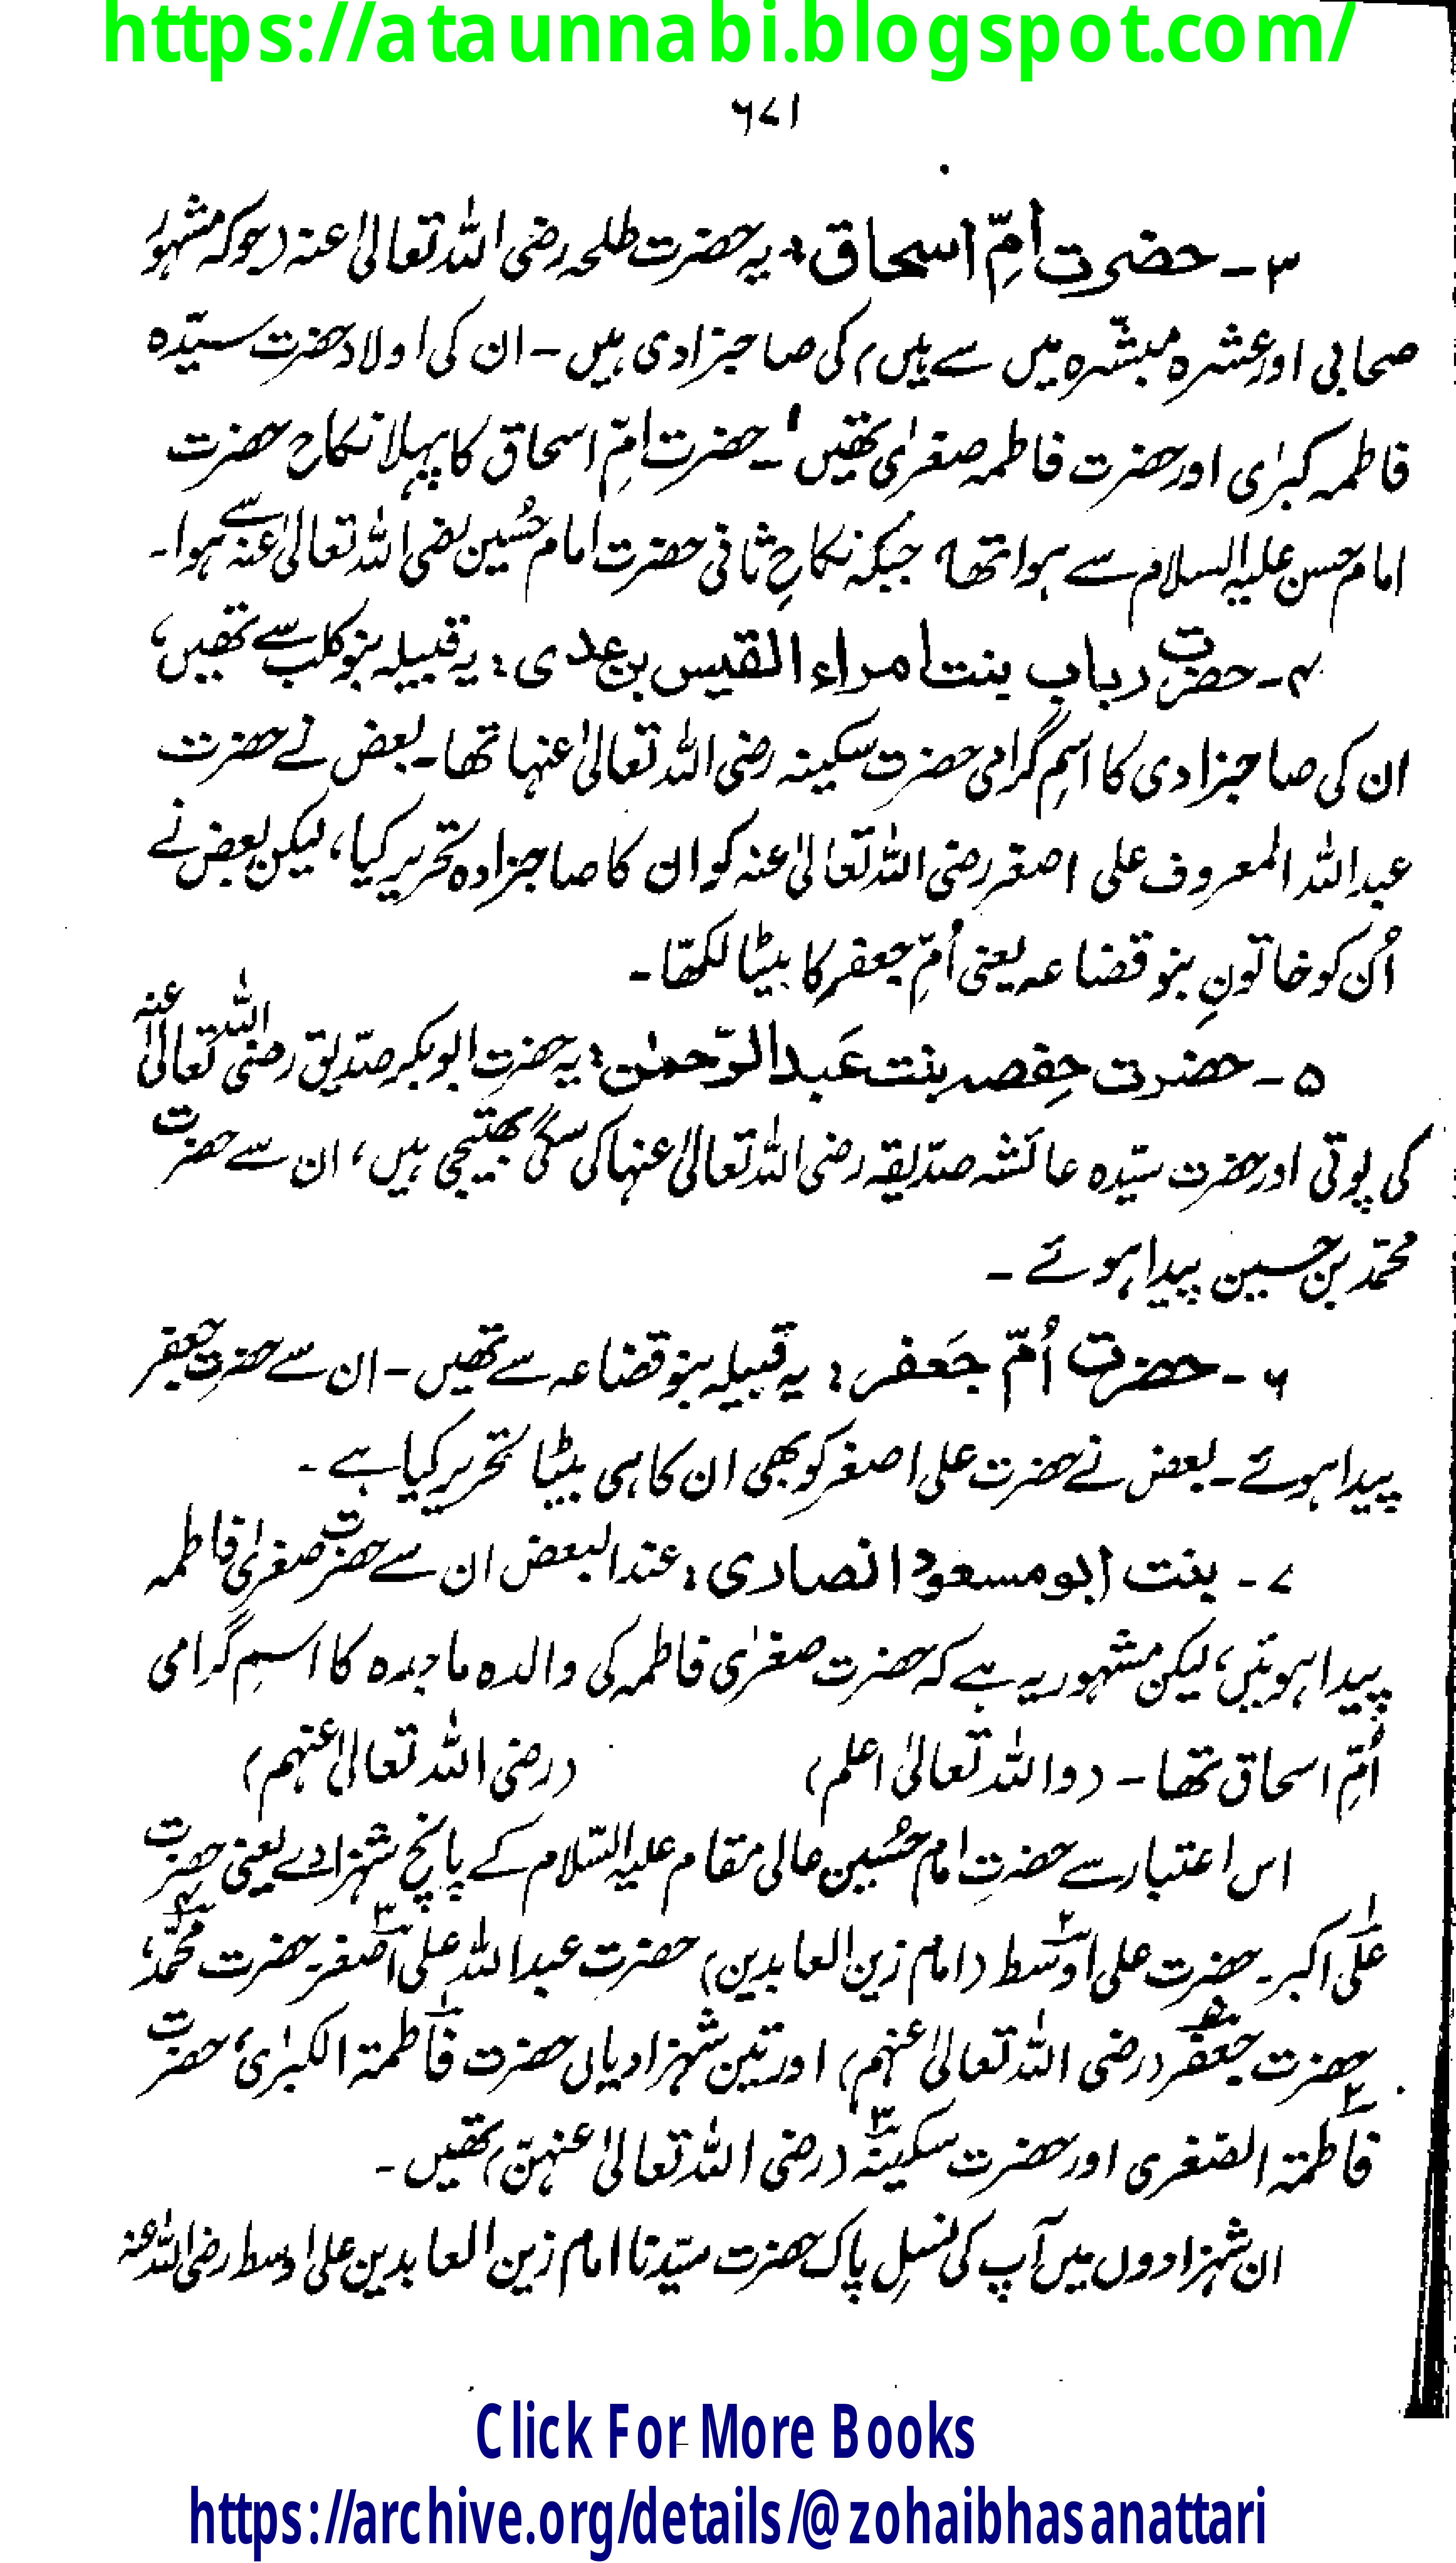 https://ataunnabi.blogspot.com/
۶۷۱
۳۔ حضرت اُمِّ اسحاق: یہ حضرت طلحہ رضی اللہ تعالیٰ عنہ (جو کہ مشہور
صحابی اور عشرہ مبشّرہ میں سے ہیں) کی صاحبزادی ہیں۔ ان کی اولاد حضرت سیّدہ
فاطمہ کبرٰی اور حضرت فاطمہ صغرٰی تھیں۔ حضرت امِّ اسحاق کا پہلا نکاح حضرت
امام حسن علیہ السلام سے ہوا تھا جبکہ نکاحِ ثانی حضرت امام حُسین رضی اللہ تعالیٰ عنہ سے ہوا۔
۴۔ حضرت رباب بنت امراء القیس بن عدی: یہ قبیلہ بنو کلب سے تھیں،
ان کی صاحبزادی کا اسمِ گرامی حضرت سکینہ رضی اللہ تعالیٰ عنہا تھا۔ بعض نے حضرت
عبداللہ المعروف علی اصغر رضی اللہ تعالیٰ عنہ کو ان کا صاحبزادہ تحریر کیا، لیکن بعض نے
اُن کو خاتونِ بنو قضاعہ یعنی اُمِّ جعفر کا بیٹا لکھا۔
۵۔ حضرت حِفصہ بنت عَبدالرّحمٰن: یہ حضرت ابوبکر صدّیق رضی اللہ تعالیٰ عنہ
کی پوتی اور حضرت سیّدہ عائشہ صدّیقہ رضی اللہ تعالیٰ عنہا کی سگی بھتیجی ہیں، ان سے حضرت
محمّد بن حسین پیدا ہوئے۔
۶۔ حضرت اُمّ جَعفر: یہ قبیلہ بنو قضاعہ سے تھیں۔ ان سے حضرت جعفر
پیدا ہوئے۔ بعض نے حضرت علی اصغر کو بھی ان کا ہی بیٹا تحریر کیا ہے۔
۷۔ بنت ابو مسعود انصاری: عند البعض ان سے حضرت صغرٰی فاطمہ
پیدا ہوئیں، لیکن مشہور یہ ہے کہ حضرت صغرٰی فاطمہ کی والدہ ماجدہ کا اسمِ گرامی
اُمِّ اسحاق تھا۔ (واللہ تعالیٰ اعلم) (رضی اللہ تعالیٰ عنہم)
اس اعتبار سے حضرتِ امام حُسین عالی مقام علیہ السّلام کے پانچ شہزادے یعنی حضرت
علی۱ اکبر۔ حضرت علی اوسط۲ (امام زین العابدین) حضرت عبداللہ علی اصغر۳۔ حضرت محمّد۴،
حضرت جعفر۵ (رضی اللہ تعالیٰ عنہم) اور تین شہزادیاں حضرت فاطمۃ۱ الکبرٰی، حضرت
فاطمۃ۲ الصّغری اور حضرت سکینہ۳ (رضی اللہ تعالیٰ عنہنّ) تھیں۔
ان شہزادوں میں آپ کی نسلِ پاک حضرت سیّدنا امام زین العابدین علی اوسط رضی اللہ عنہ
Click For More Books
https://archive.org/details/@zohaibhasanattari